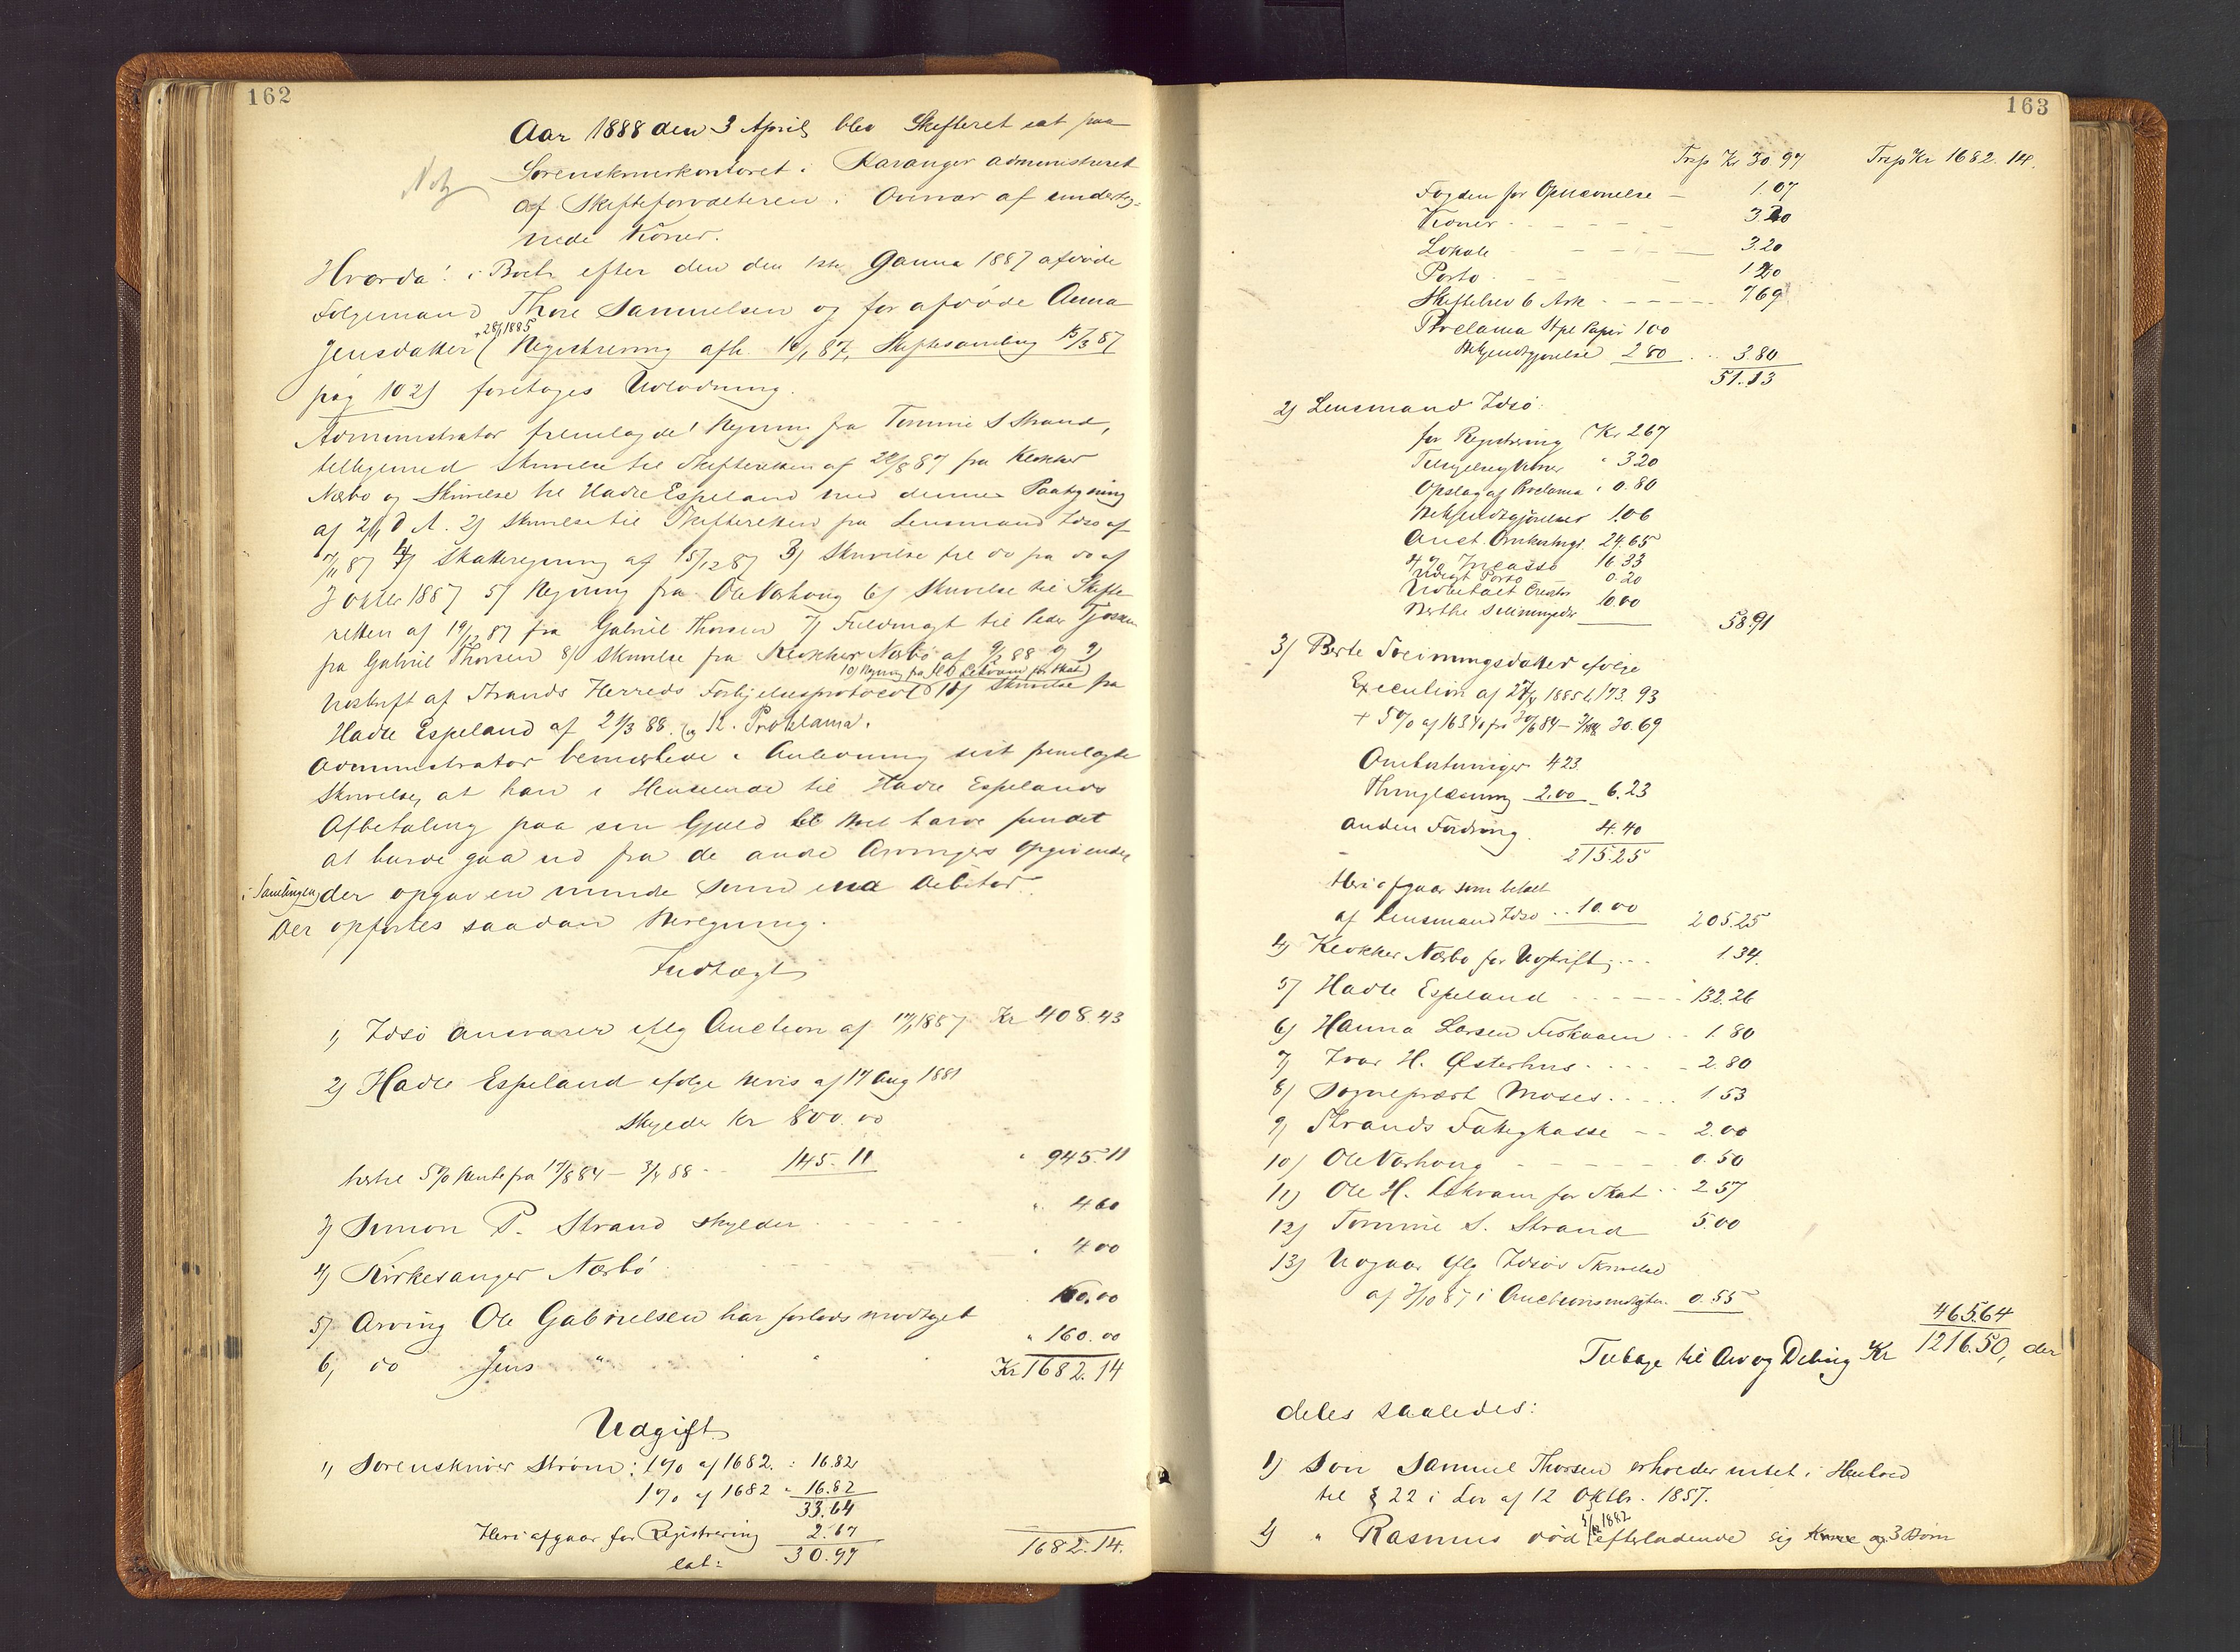 162
Aar 1888 den 3 April blev Skifteret sat paa
Sorenskriverkontoret i Stavanger administreret
af Skifteforvalteren i Overvær af underteg-
nede Vidner.
Hvorda: i Boet efter den den 1ste Janua 1887 afdøde
Folgemand Thore Samuelsen og før afdøde Anna
Jensdatter (Registrering afh. 16/1 87, Skiftesamling 15/3 87
+ 28/1 1885
pag 102) foretages Udlodning.
Administrator fremlagde 1 Regning fra Tommie S Strand,
tilligemed Skrivelse til Skifteretten af 22/8 87 fra Klokker
Nærbø og Skrivelse til Hadle Espeland med dennes Paategning
af 2/1 d A. 2) Skrivelse til Skifteretten fra Lensmand Idsø af
/11 87 4) Skatteregning af 15/12 87 3) Skrivelse til do fra do af
3 Oktbr 1887 5) Regning fra Ole Vashoug 6) Skrivelse til Skifte-
retten af 19/12 87 fra Gabriel Thorsen 7) Fuldmagt til Peder
fra Gabriel Thorsen 8) Skrivelse fra Klokker Nærbø af 9/2 88 og 9)
10) Regning fra for Skat
Udskrift af Strands Herreds Forligelsesprotocol 11) Skrivelse fra
Hadle Espeland af 21/3 88. og 12. Proklama.
Administrator bemærkede i Anledning sidst fremlagte
Skrivelse, at han i Henseende til Hadle Espelands
Afbetaling paa sin Gjæld til Boet havde fundet
at burde gaa ud fra de andre Arvingers Opgivender
i Samlingen, der opgav en mindre Sum end Debitor.
Der opførtes saadan Beregning.
Indtægt
1) Idsø ansvarer iflg Auction af 17/1 1887 Kr 408.43
2) Hadle Espeland ifølge Bevis af 17 Aug 1881
skylder Kr 800.00
hertil 5% Rente fra 17/8 84 - 3/4 88 - 145.11 " 945.11
3) Simon P. Strand skylder " 4.60
4) Kirkesanger Nærbø " 4.00
5) Arving Ole Gabrielsen har forlods modtaget 160.00
6) do Jens " " " 160.00
Kr 1682.14
Udgift
1) Sorenskriver Strøm: 1% af 1682. : 16.82
1% af 1682 " 16.82
33.64
Heri afgaar for Registrering 2.67
lat: 30.97 1682.14.
163
Trsp Kr 30.97 Trsp Kr 1682.14.
Fogden for Opnævnelse - 1.07
Vidner 3.20
Lokale 3.20
Porto 1.20
Skiftebrev 6 Ark 7.69
Proclama Stpl Papir 1.00
Bekjendtgjørelse 2.80 3.80
51.13
2) Lensmand Idsø:
for Registrering Kr 2.67
Tilsigelse Vidner " 3.20
Opslag af Proclama " 0.80
Bekjendtgjørelser 1.06
Auct. Omkostngr. 24.65
4% Incasso 16.33
Udlagt Porto 0.20
Udbetalt Creditor
Berthe Sveinungsdtr 10.00
58.91
3) Berte Sveinungsdatter ifølge
Execution af 27/4 1885 173.93
+ 5% af 163.70 fra 30/6 84 - 3/4 88 30.69
Omkostninger 4.23
Thinglæsning 2.00 6.23
anden Fordring 4.40
215.25
Heri afgaar som betalt
af Lensmand Idsø 10.00 205.25
4) Klokker Nærbø for Udskrift 1.34.
5) Hadle Espeland 132.26
6) Hanna Larsen Fiskaaen 1.80
7) Ivar H. Østerhus 2.80
8) Sogneprest Moses 1.53
9) Strands Fattigkasse 2.00
10) Ole Vashoug 0.50
11) Ole H. Lekvam for Skat 2.57
12) Tommie S. Strand 5.00
13) Udgaar iflg Idsøs Skrivelse
af 3/10 87 i Auctionsindtgten 0.55
465.64
Tilbage til Arv og Deling Kr 1216.50, der
deles saaledes:
1) Søn Samuel Thorsen erholder intet i Henhold
til § 22 i Lov af 12 Oktbr. 1857.
2) " Rasmus død 1882 efterladende sig Kone og 3 Børn